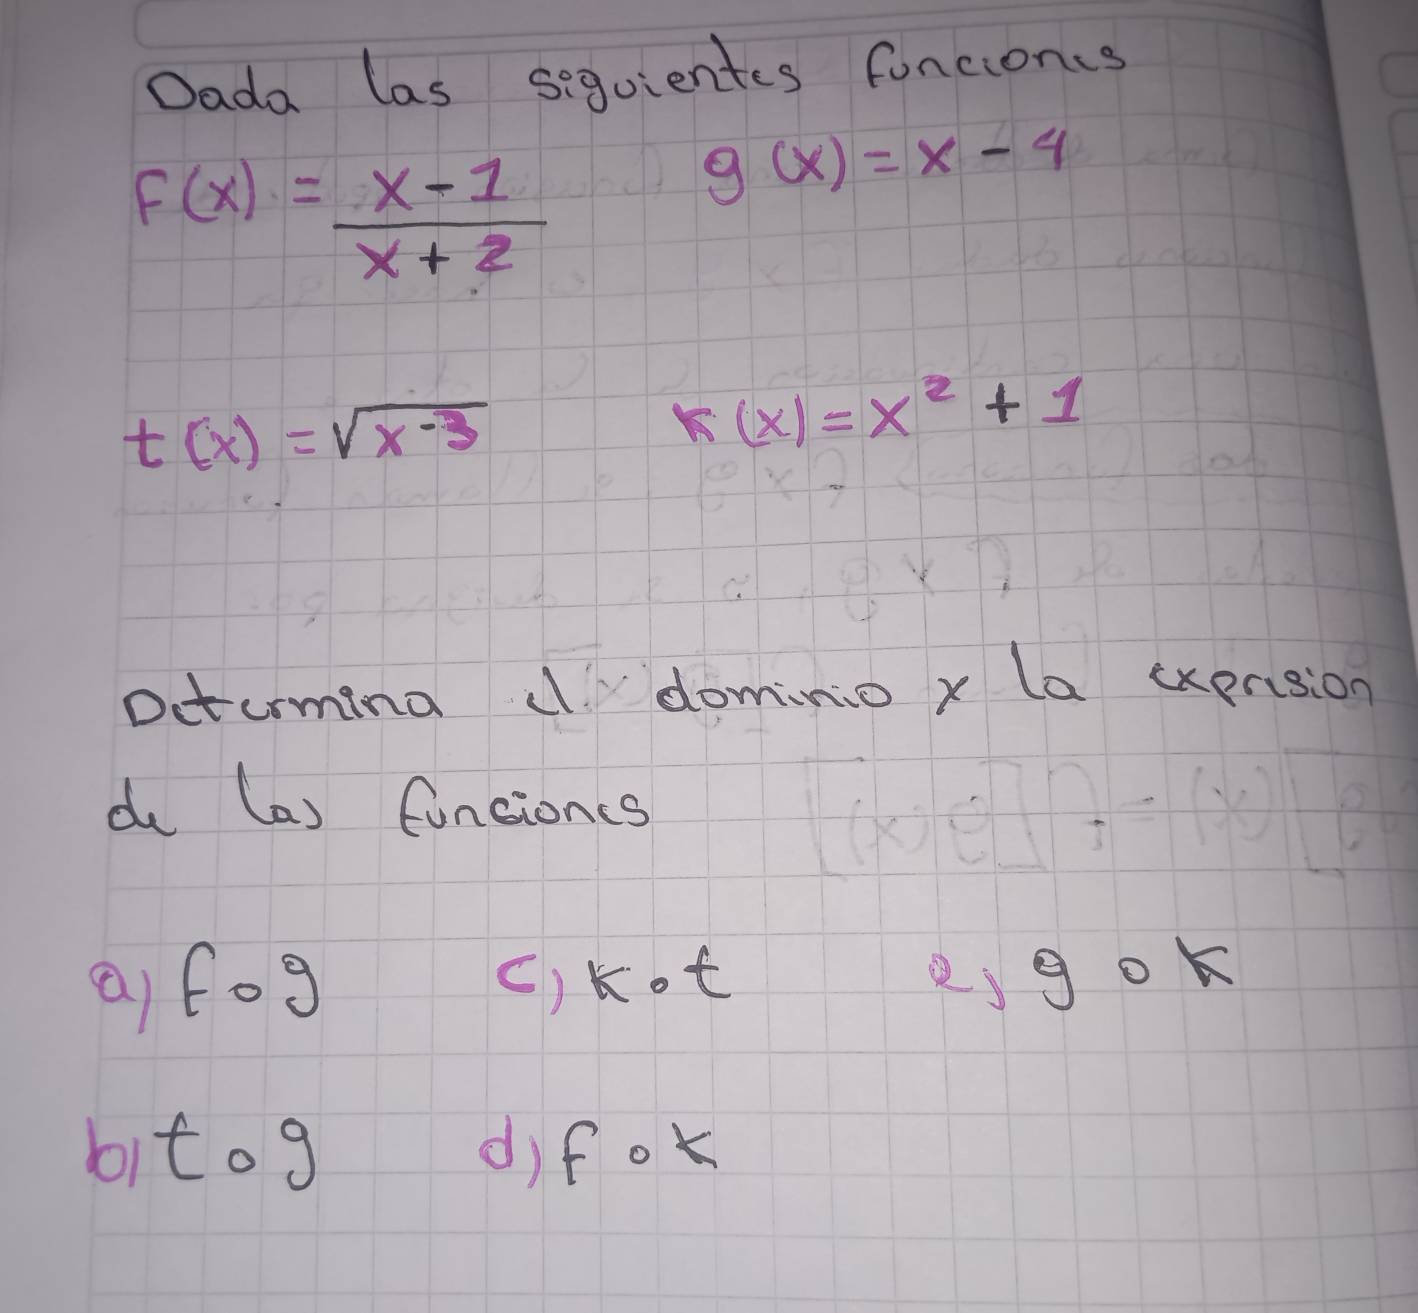 Dada las siguientes funciones
F(x) = x - 1 / x + 2    g(x) = x - 4
t(x) = √x-3    K(x) = x² + 1
Determina el dominio y la expresion
de las funciones
a) f o g    c) k o t    e) g o k
b) t o g    d) f o k